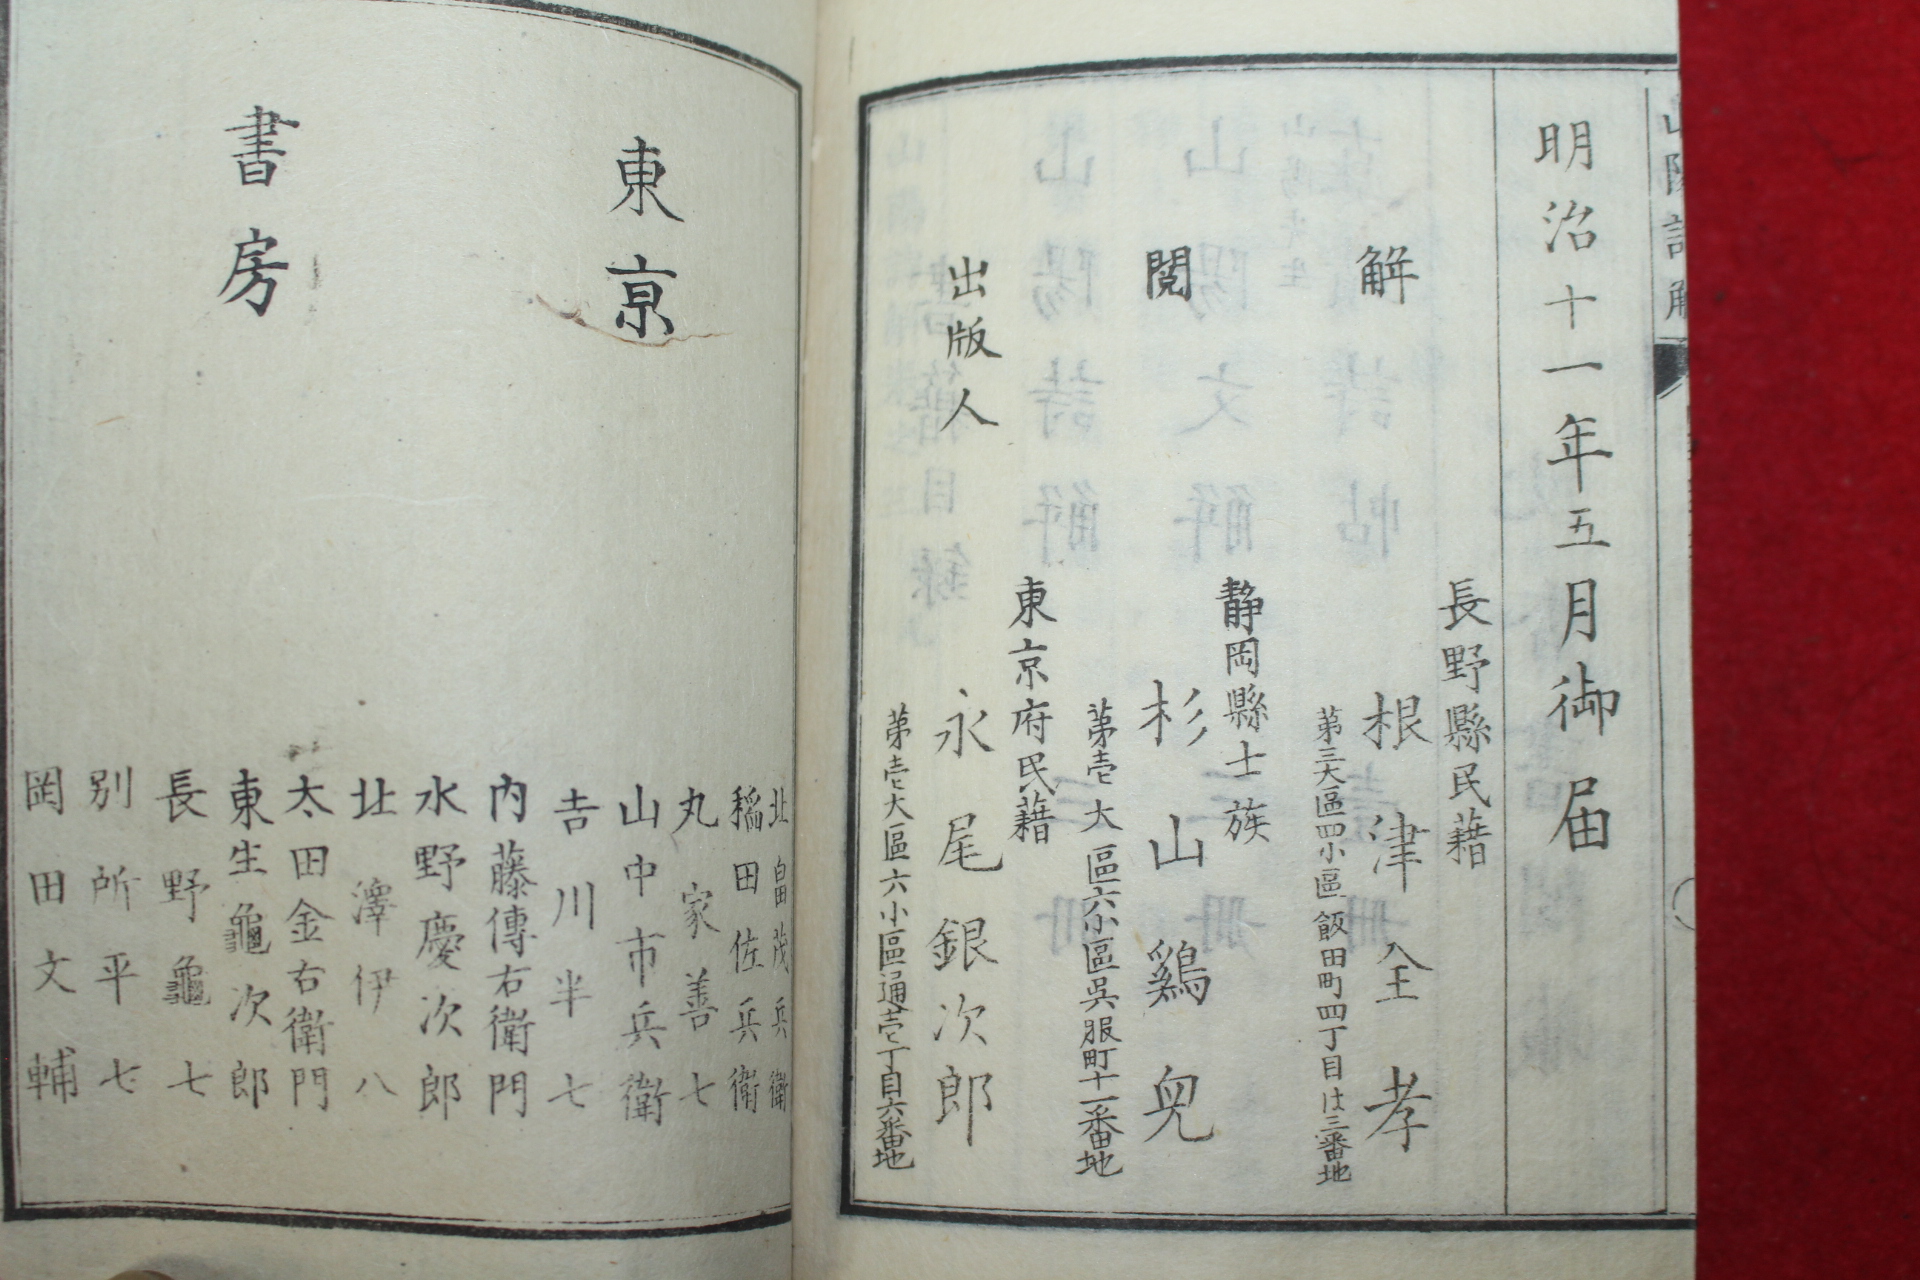 明治十一年五月御届
長野縣民藉
解 根津全孝
第三大區四小區飯田町四丁目は三番地
静岡縣士族
閲 杉山鷄兒
第壱大區六小區呉服町十一番地
東京府民藉
出版人 永尾銀次郎
第壱大區六小區通壱丁目六番地
東京
書房
北畠茂兵衛
稲田佐兵衛
丸家善七
山中市兵衛
吉川半七
内藤傳右衛門
水野慶次郎
北澤伊八
太田金右衛門
東生龜次郎
長野龜七
別所平七
岡田文輔